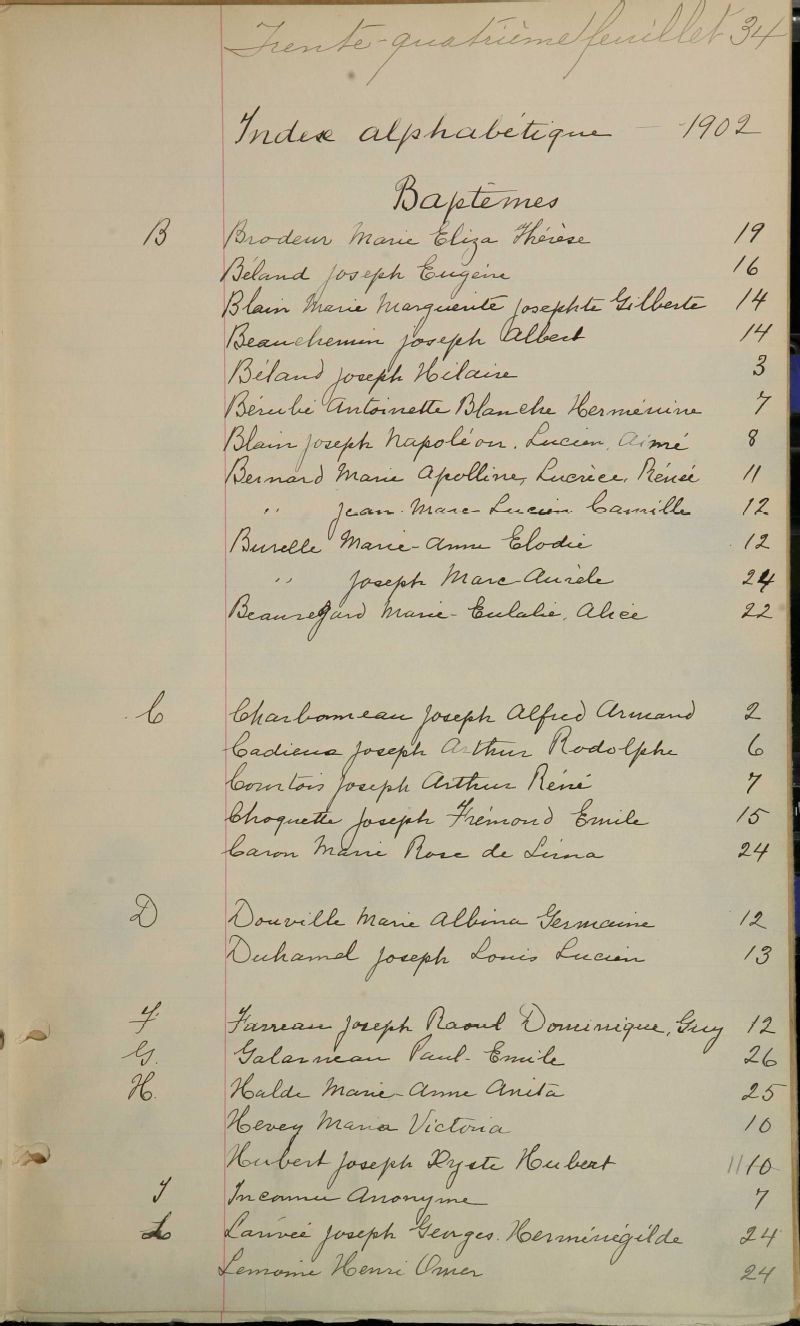 Trente-quatrième feuillet 34
Index alphabétique - 1902
Baptêmes
B Brodeur Marie Eliza Thérèse 19
Béland Joseph Eugène 16
Blain Marie Marguerite Josephte Gilberte 14
Beauchemin Joseph Albert 14
Béland Joseph Hilaire 3
Bérubé Antoinette Blanche Herménine 7
Blain Joseph Napoléon, Lucien, Aimé 8
Bernard Marie Apolline, Lucrèce, Rénée 11
" Jean-Marc-Lucien Camille 12
Burelle Marie-Anne Elodie 12
" Joseph Marc-Aurèle 24
Beauregard Marie-Eulalie, Alice 22
C Charbonneau Joseph Alfred Armand 2
Cadieux Joseph Arthur Rodolphe 6
Courtois Joseph Arthur Réné 7
Choquette Joseph Frémond Emile 15
Caron Marie Rose de Lima 24
D Douville Marie Albina Germaine 12
Duhamel Joseph Louis Lucien 13
F Farreau Joseph Raoul Dominique, Guy 12
G. Galarneau Paul-Emile 26
H. Halde Marie-Anne Anita 25
Hevey Maria Victoria 10
Hubert Joseph Xyste Hubert 10
I Inconnu Anonyme 7
L Larivée Joseph Georges. Herménégilde 24
Lemoine Henri Omer 24